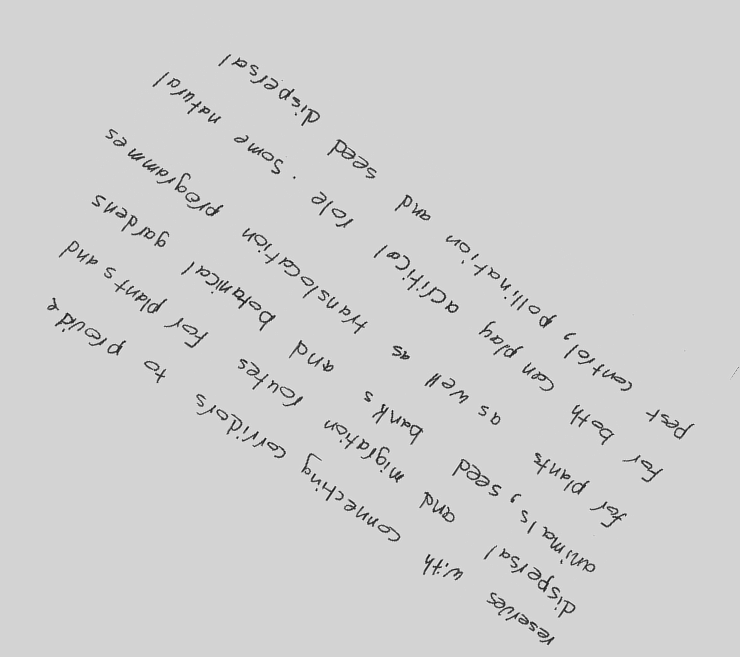 reserves with connecting corridors to provide
dispersal and migration routes for plants and
animals, seed banks and botanical gardens
for plants as well as translocation programmes
for both can play acritical role. Some natural
pest control, pollination and seed dispersal